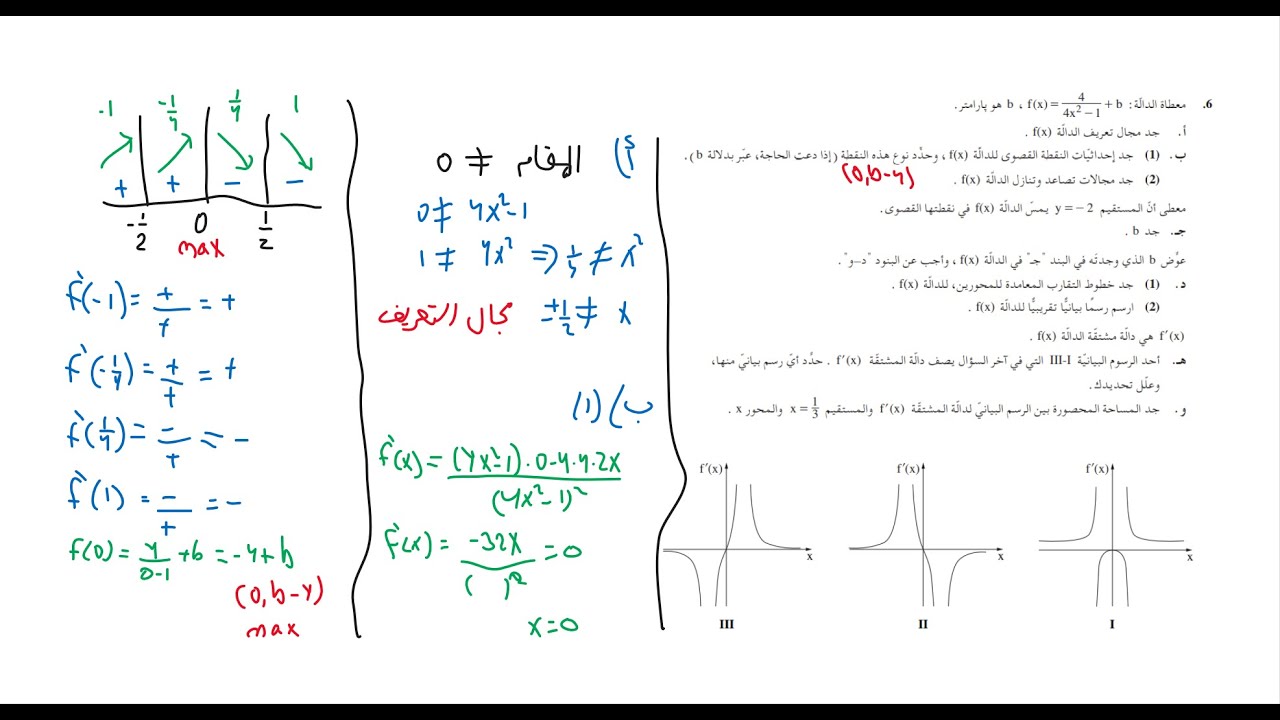 6. معطاة الدالّة: f(x) = 4/(4x² − 1) + b ، b هو پارامتر.
أ. جد مجال تعريف الدالّة f(x) .
ب. (1) جد إحداثيّات النقطة القصوى للدالّة f(x) ، وحدِّد نوع هذه النقطة (إذا دعت الحاجة، عبّر بدلالة b).
(0, b-4)
(2) جد مجالات تصاعد وتنازل الدالّة f(x) .
معطى أنّ المستقيم y = −2 يمسّ الدالّة f(x) في نقطتها القصوى.
جـ. جد b .
عوِّض b الذي وجدتَه في البند "جـ" في الدالّة f(x) ، وأجب عن البنود "د-و" .
د. (1) جد خطوط التقارب المعامدة للمحورين، للدالّة f(x) .
(2) ارسم رسمًا بيانيًّا تقريبيًّا للدالّة f(x) .
f′(x) هي دالّة مشتقّة الدالّة f(x) .
هـ. أحد الرسوم البيانيّة III-I التي في آخر السؤال يصف دالّة المشتقّة f′(x) . حدِّد أيّ رسم بيانيّ منها،
وعلّل تحديدك.
و. جد المساحة المحصورة بين الرسم البيانيّ لدالّة المشتقّة f′(x) والمستقيم x = 1/3 والمحور x .
f′(x) x I
f′(x) x II
f′(x) x III
أ) المقام ≠ 0
0 ≠ 4x²-1
1 ≠ 4x² ⇒ 1/4 ≠ x²
مجال التعريف ±1/2 ≠ x
ب) (1)
f`(x) = ((4x²-1)·0-4·4·2x)/(4x²-1)²
f`(x) = -32x/( )² = 0
x=0
-1 -1/4 1/4 1
+ + - -
-1/2 0 1/2
max
f`(-1) = +/+ = +
f`(-1/4) = +/+ = +
f`(1/4) = -/+ = -
f`(1) = -/+ = -
f(0) = 4/(0-1) + b = -4+b
(0, b-4)
max